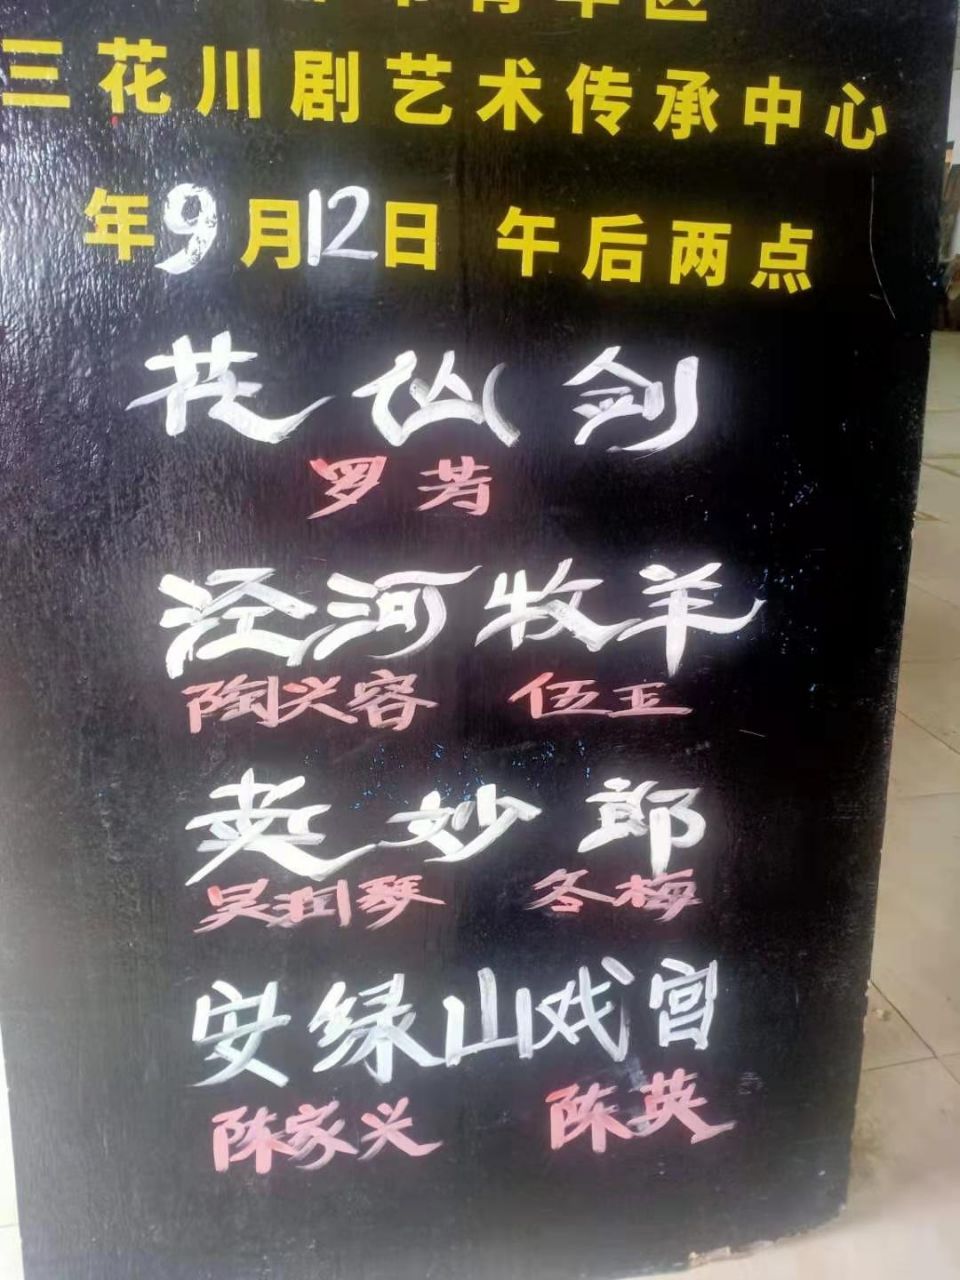 三花川剧艺术传承中心
年9月12日 午后两点
花仙剑
罗芳
泾河牧羊
陶兴容 伍玉
卖妙郎
吴润琴 冬梅
安绿山戏宫
陈家兴 陈英